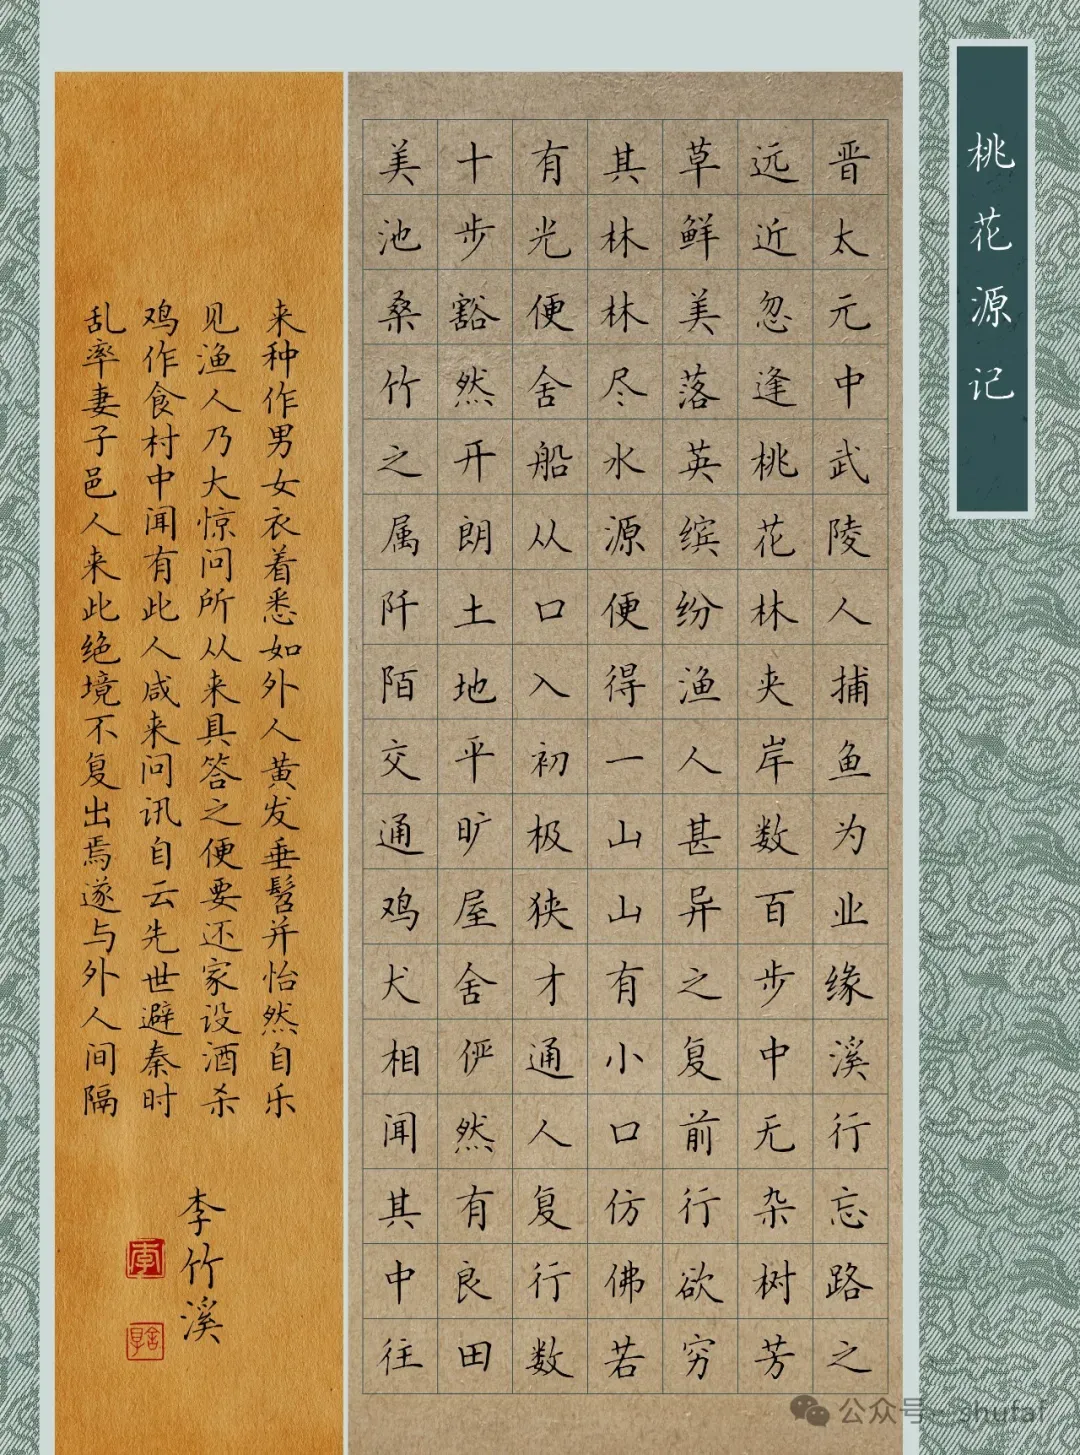 桃花源记
晋太元中武陵人捕鱼为业缘溪行忘路之
远近忽逢桃花林夹岸数百步中无杂树芳
草鲜美落英缤纷渔人甚异之复前行欲穷
其林林尽水源便得一山山有小口仿佛若
有光便舍船从口入初极狭才通人复行数
十步豁然开朗土地平旷屋舍俨然有良田
美池桑竹之属阡陌交通鸡犬相闻其中往
来种作男女衣着悉如外人黄发垂髫并怡然自乐
见渔人乃大惊问所从来具答之便要还家设酒杀
鸡作食村中闻有此人咸来问讯自云先世避秦时
乱率妻子邑人来此绝境不复出焉遂与外人间隔
李竹溪
李
公众号